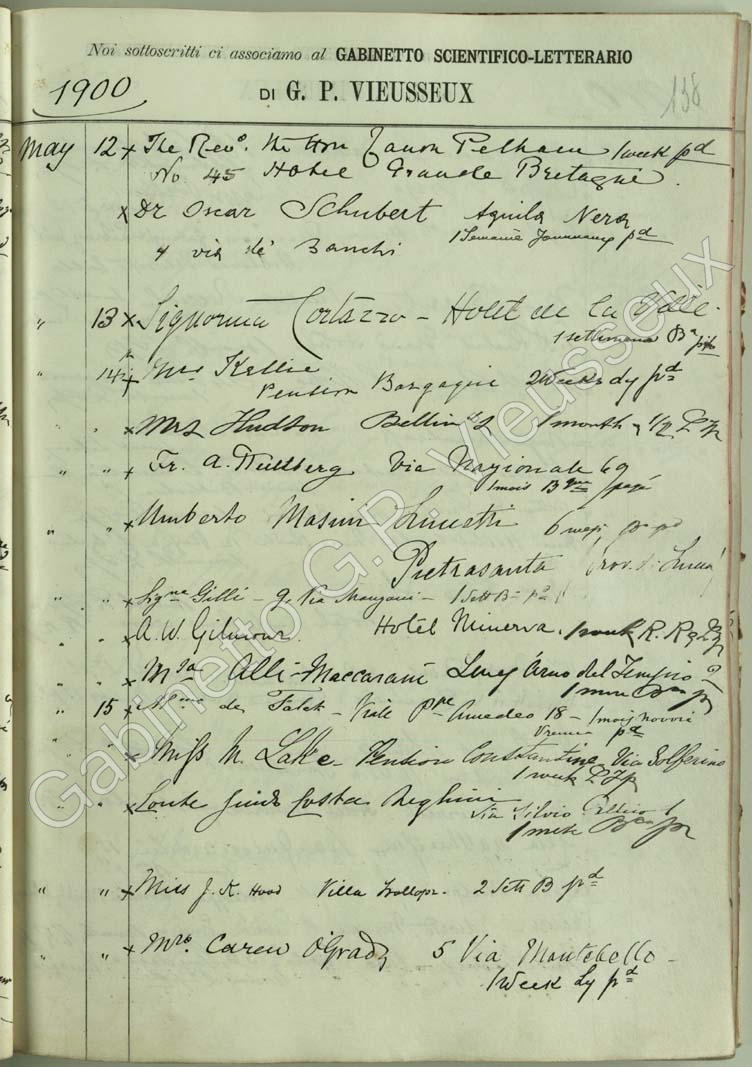 Noi sottoscritti ci associamo al GABINETTO SCIENTIFICO-LETTERARIO
1900
DI G. P. VIEUSSEUX
138
May 12 x The Revd. The Hon Canon Pelham 1 week pd
No 45 Hotel Grande Bretagne.
x Dr Oscar Schubert Aquila Nera
1 Semaine pd
4 via de' Banchi
" 13 x Signorina Cortazzo - Hotel de la Ville.
1 settimana
" 14 x Mrs Kellie
Pension 2 weeks dy pd
" " x Mrs Hudson Bellini's 1 month
" " x Fr. A. Via Nazionale 69
1 mois payé
" " x Umberto Masini
6 mesi
Pietrasanta Prov. di Lucca
" " x Signa Gilli - 9 Via Manzoni - 1 Sett B pd
" " x A. W. Gilmour. Hotel Minerva. 1 week
" " x Alli-Maccarani Lung'Arno del Tempio
" 15 x de Falck - Viale Ppe Amedeo 18 - 1 mois
pd
" " x Miss M. Lake - Pension Constantine Via Solferino
1 week
" " x Conte Guido Costa Reghini Via Silvio Pellico 1
" " x Miss J. K. Hood Villa Trollope. 2 Sett B pd
" " x Mrs. Carew O'Grady 5 Via Montebello -
1 Week Ly pd
Gabinetto G.P. Vieusseux